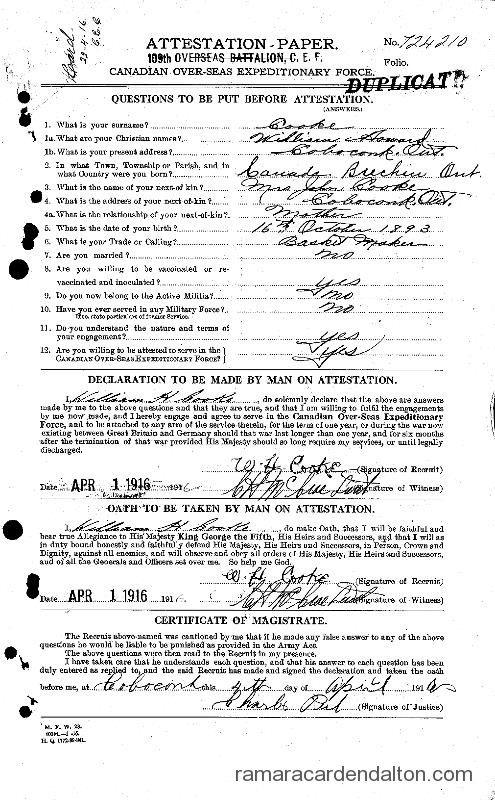 Card
22-4-16
ATTESTATION-PAPER. No. 724210
109th OVERSEAS BATTALION, C. E. F. Folio.
CANADIAN OVER-SEAS EXPEDITIONARY FORCE.
DUPLICATE
QUESTIONS TO BE PUT BEFORE ATTESTATION.
(ANSWERS.)
1. What is your surname? Cooke
1a. What are your Christian names? William Howard
1b. What is your present address? Coboconk. Ont.
2. In what Town, Township or Parish, and in
what Country were you born? Canada Brechin Ont
3. What is the name of your next-of kin? Mrs John Cooke
4. What is the address of your next-of-kin? Coboconk, Ont.
4a. What is the relationship of your next-of-kin? Mother
5. What is the date of your birth? 16th October 1893
6. What is your Trade or Calling? Basket Maker
7. Are you married? no
8. Are you willing to be vaccinated or re-
vaccinated and inoculated? yes
9. Do you now belong to the Active Militia? no
10. Have you ever served in any Military Force? no
If so, state particulars of former Service.
11. Do you understand the nature and terms of
your engagement? yes
12. Are you willing to be attested to serve in the
CANADIAN OVER-SEAS EXPEDITIONARY FORCE? yes
DECLARATION TO BE MADE BY MAN ON ATTESTATION.
I, William H. Cooke, do solemnly declare that the above are answers
made by me to the above questions and that they are true, and that I am willing to fulfil the engagements
by me now made, and I hereby engage and agree to serve in the Canadian Over-Seas Expeditionary
Force, and to be attached to any arm of the service therein, for the term of one year, or during the war now
existing between Great Britain and Germany should that war last longer than one year, and for six months
after the termination of that war provided His Majesty should so long require my services, or until legally
discharged.
W H Cooke (Signature of Recruit)
Date APR 1 1916 191 (Signature of Witness)
OATH TO BE TAKEN BY MAN ON ATTESTATION.
I, William H Cooke, do make Oath, that I will be faithful and
bear true Allegiance to His Majesty King George the Fifth, His Heirs and Successors, and that I will as
in duty bound honestly and faithfully defend His Majesty, His Heirs and Successors, in Person, Crown and
Dignity, against all enemies, and will observe and obey all orders of His Majesty, His Heirs and Successors,
and of all the Generals and Officers set over me. So help me God.
W H Cooke (Signature of Recruit)
Date APR 1 1916 191 (Signature of Witness)
CERTIFICATE OF MAGISTRATE.
The Recruit above-named was cautioned by me that if he made any false answer to any of the above
questions he would be liable to be punished as provided in the Army Act.
The above questions were then read to the Recruit in my presence.
I have taken care that he understands each question, and that his answer to each question has been
duly entered as replied to, and the said Recruit has made and signed the declaration and taken the oath
before me, at Coboconk this day of April 1916
(Signature of Justice)
M. F. W. 23.
H. Q. 1772-39-841.
ramaracardendalton.com